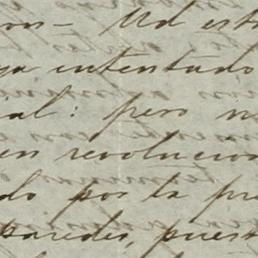 on - Ud est
ya intentado
ial: pero n
en revolucion
do por la pr
paredes, puest